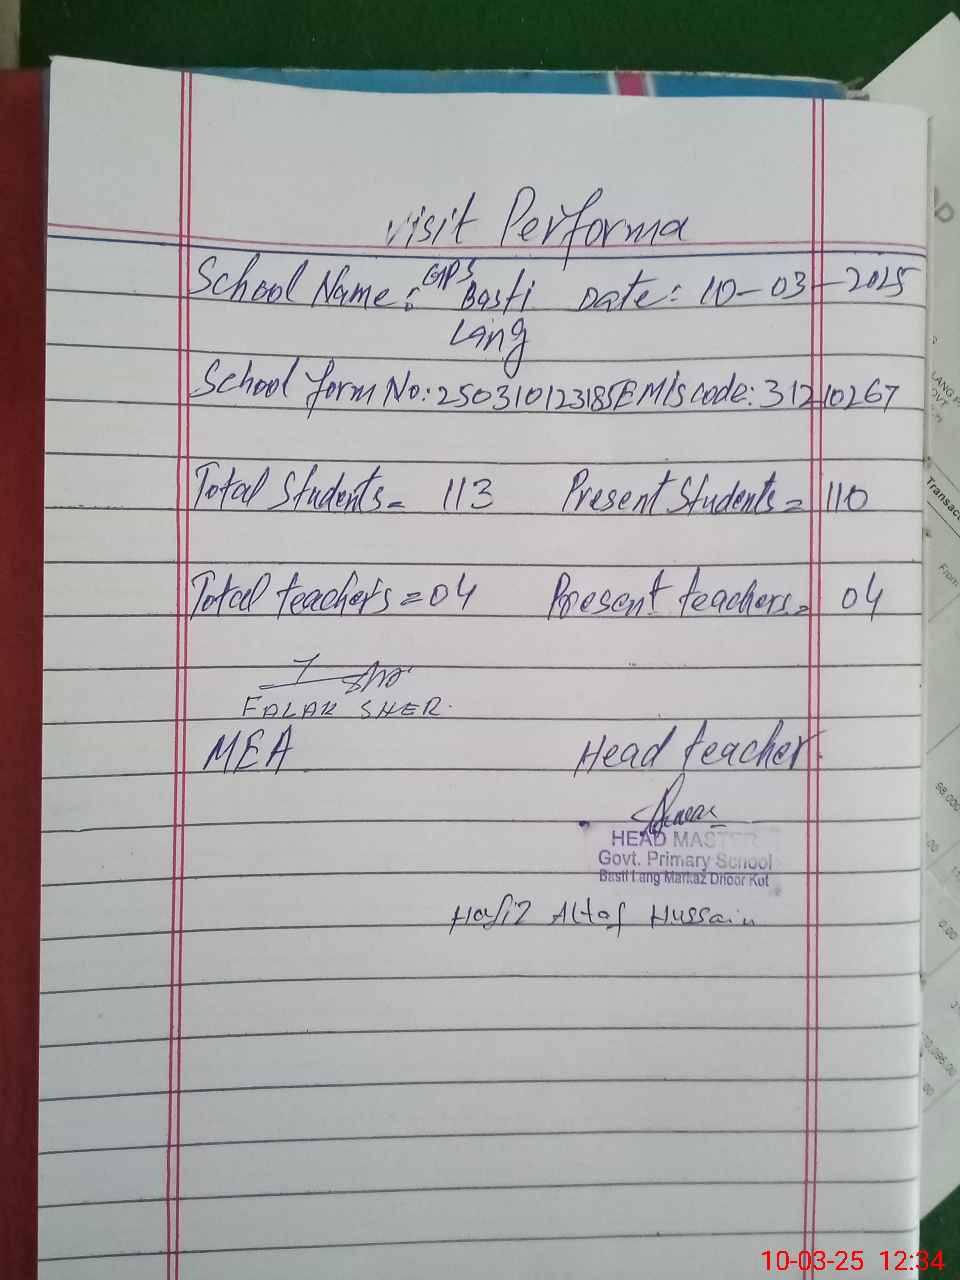 visit Performa
School Name: GPS Basti Lang Date: 10-03-2025
School form No: 250310123185 EMIS code: 31210267
Total Students= 113 Present Students= 110
Total teachers=04 Present teachers= 04
FALAK SHER.
MEA Head teacher.
HEAD MASTER
Govt. Primary School
Basti Lang Markaz Dhoor Kot
Hafiz Altaf Hussain
LANG P
Transac
From
98,000
0.00
70,096.00
10-03-25 12:34